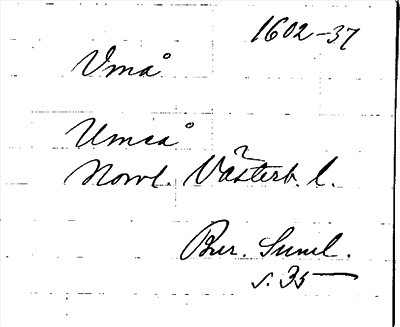 1602-37
Vmå
Umeå
Norrl. Västerb. l.
Bur. Suml.
s. 35